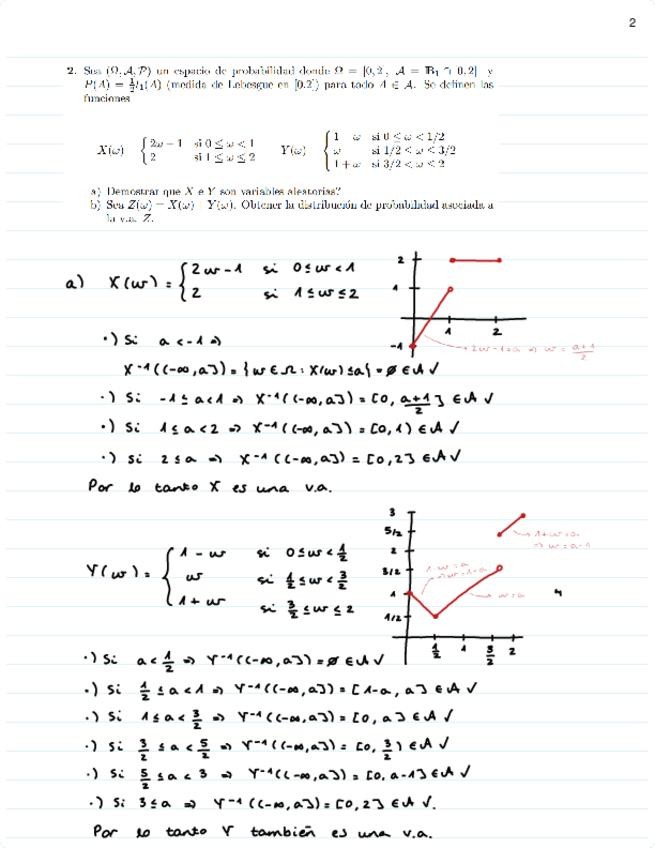 2
2. Sea (Ω, A, P) un espacio de probabilidad donde Ω = [0,2], A = B₁ ∩ [0,2] y
P(A) = ½l₁(A) (medida de Lebesgue en [0,2]) para todo A ∈ A. Se definen las
funciones
X(ω) { 2ω − 1 si 0 ≤ ω < 1
2 si 1 ≤ ω ≤ 2
Y(ω) { 1 ω si 0 ≤ ω < 1/2
ω si 1/2 < ω < 3/2
1 + ω si 3/2 < ω ≤ 2
a) Demostrar que X e Y son variables aleatorias?
b) Sea Z(ω) = X(ω) Y(ω). Obtener la distribución de probabilidad asociada a
la v.a. Z.
a) X(w) = { 2w-1 si 0≤w<1
2 si 1≤w≤2
2
1
-1
1 2
2w-1=a ⇒ w = (a+1)/2
·) Si a<-1 ⇒
X⁻¹((-∞,a]) = {w∈Ω : X(w)≤a} = ∅ ∈ A ✓
·) Si -1≤a<1 ⇒ X⁻¹((-∞,a]) = [0, (a+1)/2] ∈ A ✓
·) Si 1≤a<2 ⇒ X⁻¹((-∞,a]) = [0,1) ∈ A ✓
·) Si 2≤a ⇒ X⁻¹((-∞,a]) = [0,2] ∈ A ✓
Por lo tanto X es una v.a.
Y(w) = { 1-w si 0≤w<1/2
w si 1/2≤w<3/2
1+w si 3/2≤w≤2
3
5/2
2
3/2
1
1/2
1/2 1 3/2 2
1-w=a
⇒w=1-a
w=a
1+w=a
⇒ w=a-1
·) Si a<1/2 ⇒ Y⁻¹((-∞,a]) = ∅ ∈ A ✓
·) Si 1/2≤a<1 ⇒ Y⁻¹((-∞,a]) = [1-a, a] ∈ A ✓
·) Si 1≤a<3/2 ⇒ Y⁻¹((-∞,a]) = [0,a] ∈ A ✓
·) Si 3/2≤a<5/2 ⇒ Y⁻¹((-∞,a]) = [0, 3/2) ∈ A ✓
·) Si 5/2≤a<3 ⇒ Y⁻¹((-∞,a]) = [0,a-1] ∈ A ✓
·) Si 3≤a ⇒ Y⁻¹((-∞,a]) = [0,2] ∈ A ✓.
Por lo tanto Y también es una v.a.